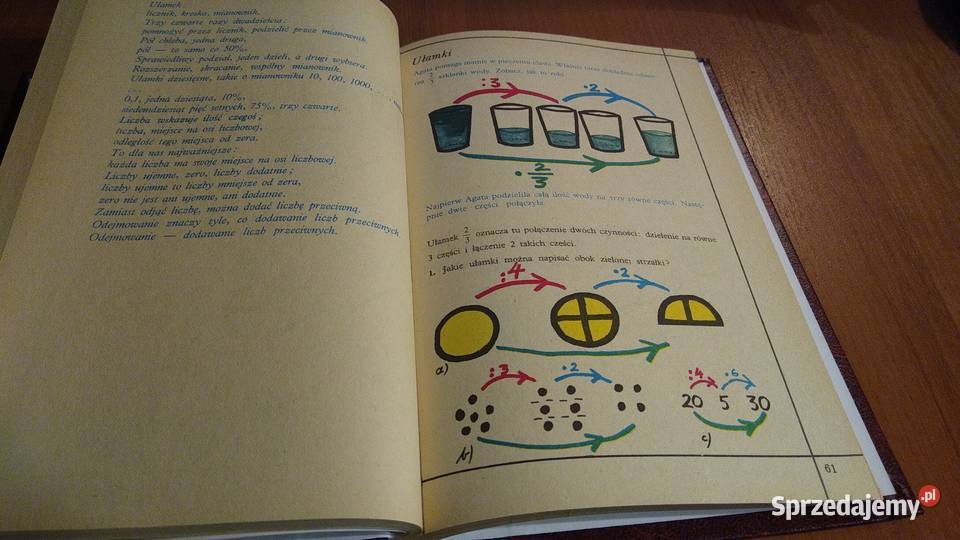 Ułamek:
licznik, kreska, mianownik.
Trzy czwarte razy dwadzieścia:
pomnożyć przez licznik, podzielić przez mianownik.
Pół chleba, jedna druga,
pół — to samo co 50%,
Sprawiedliwy podział, jeden dzieli, a drugi wybiera.
Rozszerzanie, skracanie, wspólny mianownik.
Ułamki dziesiętne, takie o mianowniku 10, 100, 1000,
0,1, jedna dziesiąta, 10%,
siedemdziesiąt pięć setnych, 75%, trzy czwarte.
Liczba wskazuje ilość czegoś,
liczba, miejsce na osi liczbowej,
odległość tego miejsca od zera.
To dla nas najważniejsze:
każda liczba ma swoje miejsce na osi liczbowej.
Liczby ujemne, zero, liczby dodatnie;
liczby ujemne to liczby mniejsze od zera,
zero nie jest ani ujemne, ani dodatnie.
Zamiast odjąć liczbę, można dodać liczbę przeciwną.
Odejmowanie znaczy tyle, co dodawanie liczb przeciwnych
Odejmowanie — dodawanie liczb przeciwnych.
Ułamki
Agata pomaga mamie w pieczeniu ciasta.
2/3 szklanki wody. Zobacz, jak to robi.
:3 ·2
· 2/3
Najpierw Agata podzieliła całą ilość wody na trzy równe części. Nastę-
pnie dwie części połączyła.
Ułamek 2/3 oznacza tu połączenie dwóch czynności: dzielenie na równe
3 części i łączenie 2 takich części.
1. Jakie ułamki można napisać obok zielonej strzałki?
:4 ·2
a)
:3 ·2
b)
:4 ·6
20 5 30
c)
61
Sprzedajemy.pl